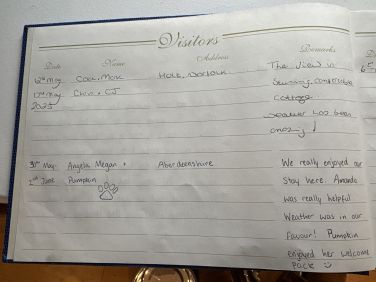 Visitors
Date Name Address Remarks
12th May Holt, Norfolk The view is
17th May Chris + CJ stunning, comfortable
2025 cottage
weather has been
amazing!
31st May Angela, Megan + Aberdeenshire We really enjoyed our
1st June Pumpkin Stay here. Amanda
was really helpful
Weather was in our
favour! Pumpkin
enjoyed her welcome
Pack